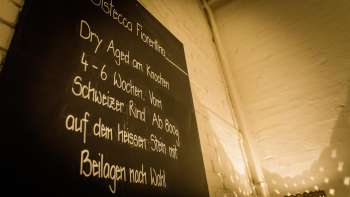 Bistecca Fiorentina
Dry Aged am Knochen
4-6 Wochen. Vom
Schweizer Rind. Ab 800g
auf dem heissen Stein mit
Beilagen nach Wahl